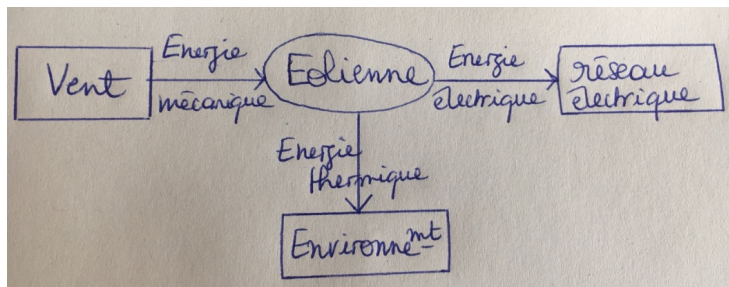 Vent
Energie
mécanique
Eolienne
Energie
électrique
réseau
électrique
Energie
thermique
Environnemt